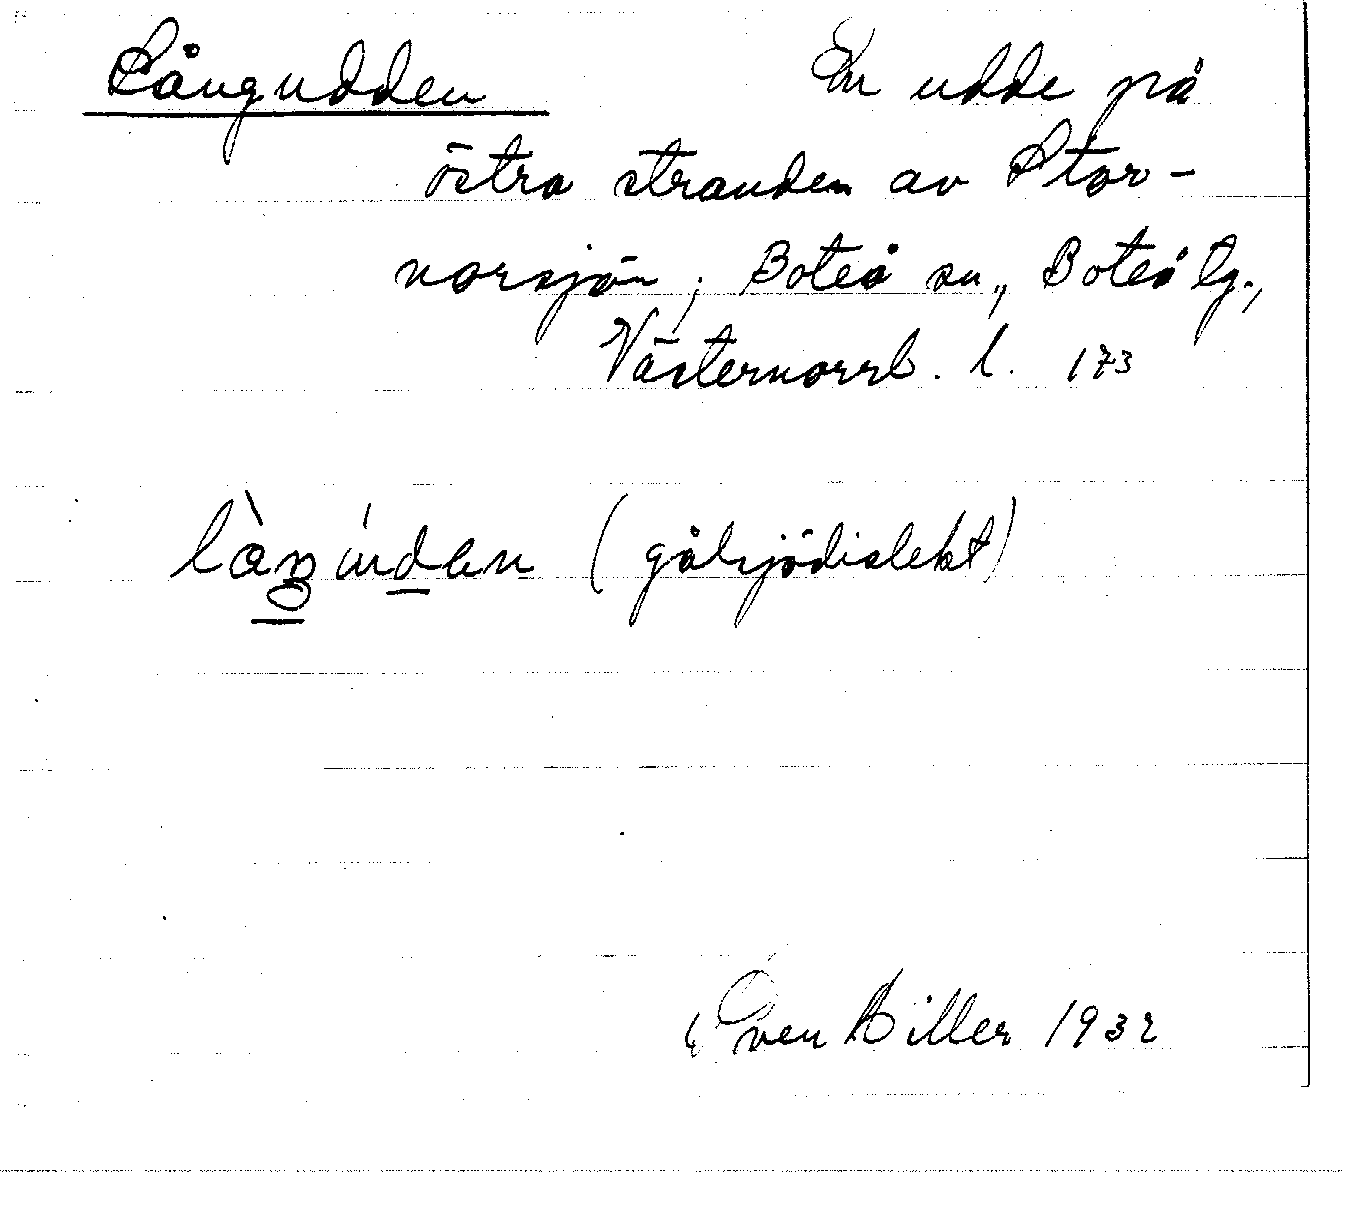 Långudden En udde på
östra stranden av Stor-
norsjön, Boteå sn., Boteå lg.,
Västernorrl. l. 173
(gålsjödialekt)
Sven Hiller 1932